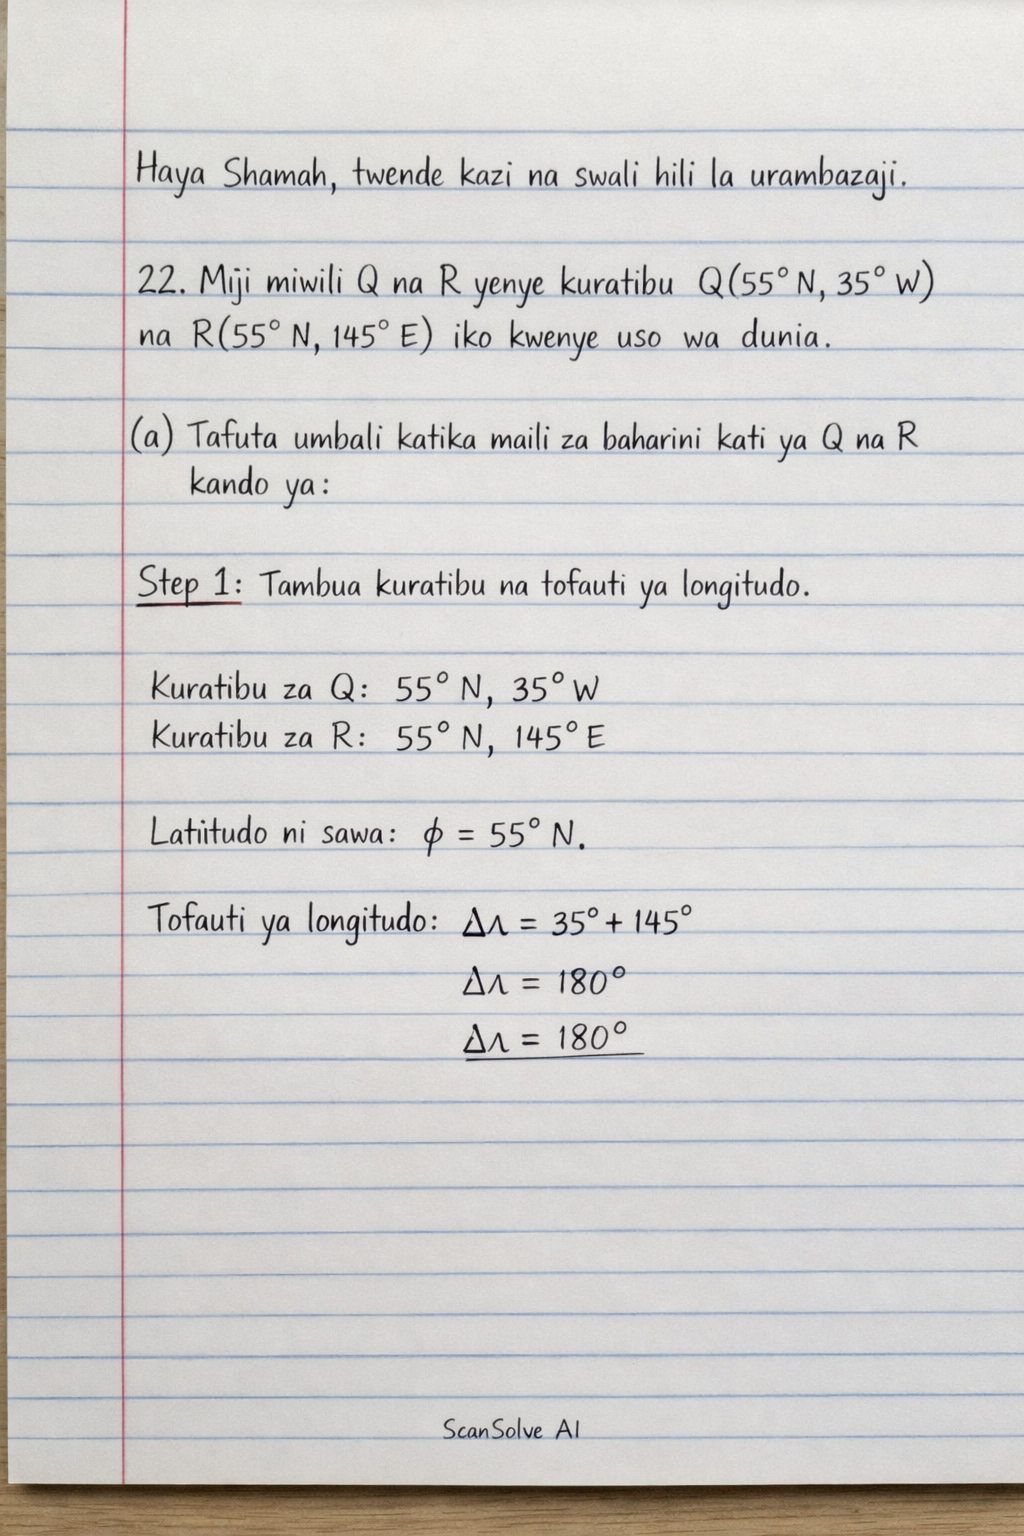 Haya Shamah, twende kazi na swali hili la urambazaji.
22. Miji miwili Q na R yenye kuratibu Q(55° N, 35° W)
na R(55° N, 145° E) iko kwenye uso wa dunia.
(a) Tafuta umbali katika maili za baharini kati ya Q na R
kando ya:
Step 1: Tambua kuratibu na tofauti ya longitudo.
Kuratibu za Q: 55° N, 35° W
Kuratibu za R: 55° N, 145° E
Latiitudo ni sawa: ϕ = 55° N.
Tofauti ya longitudo: Δλ = 35° + 145°
Δλ = 180°
Δλ = 180°
ScanSolve AI